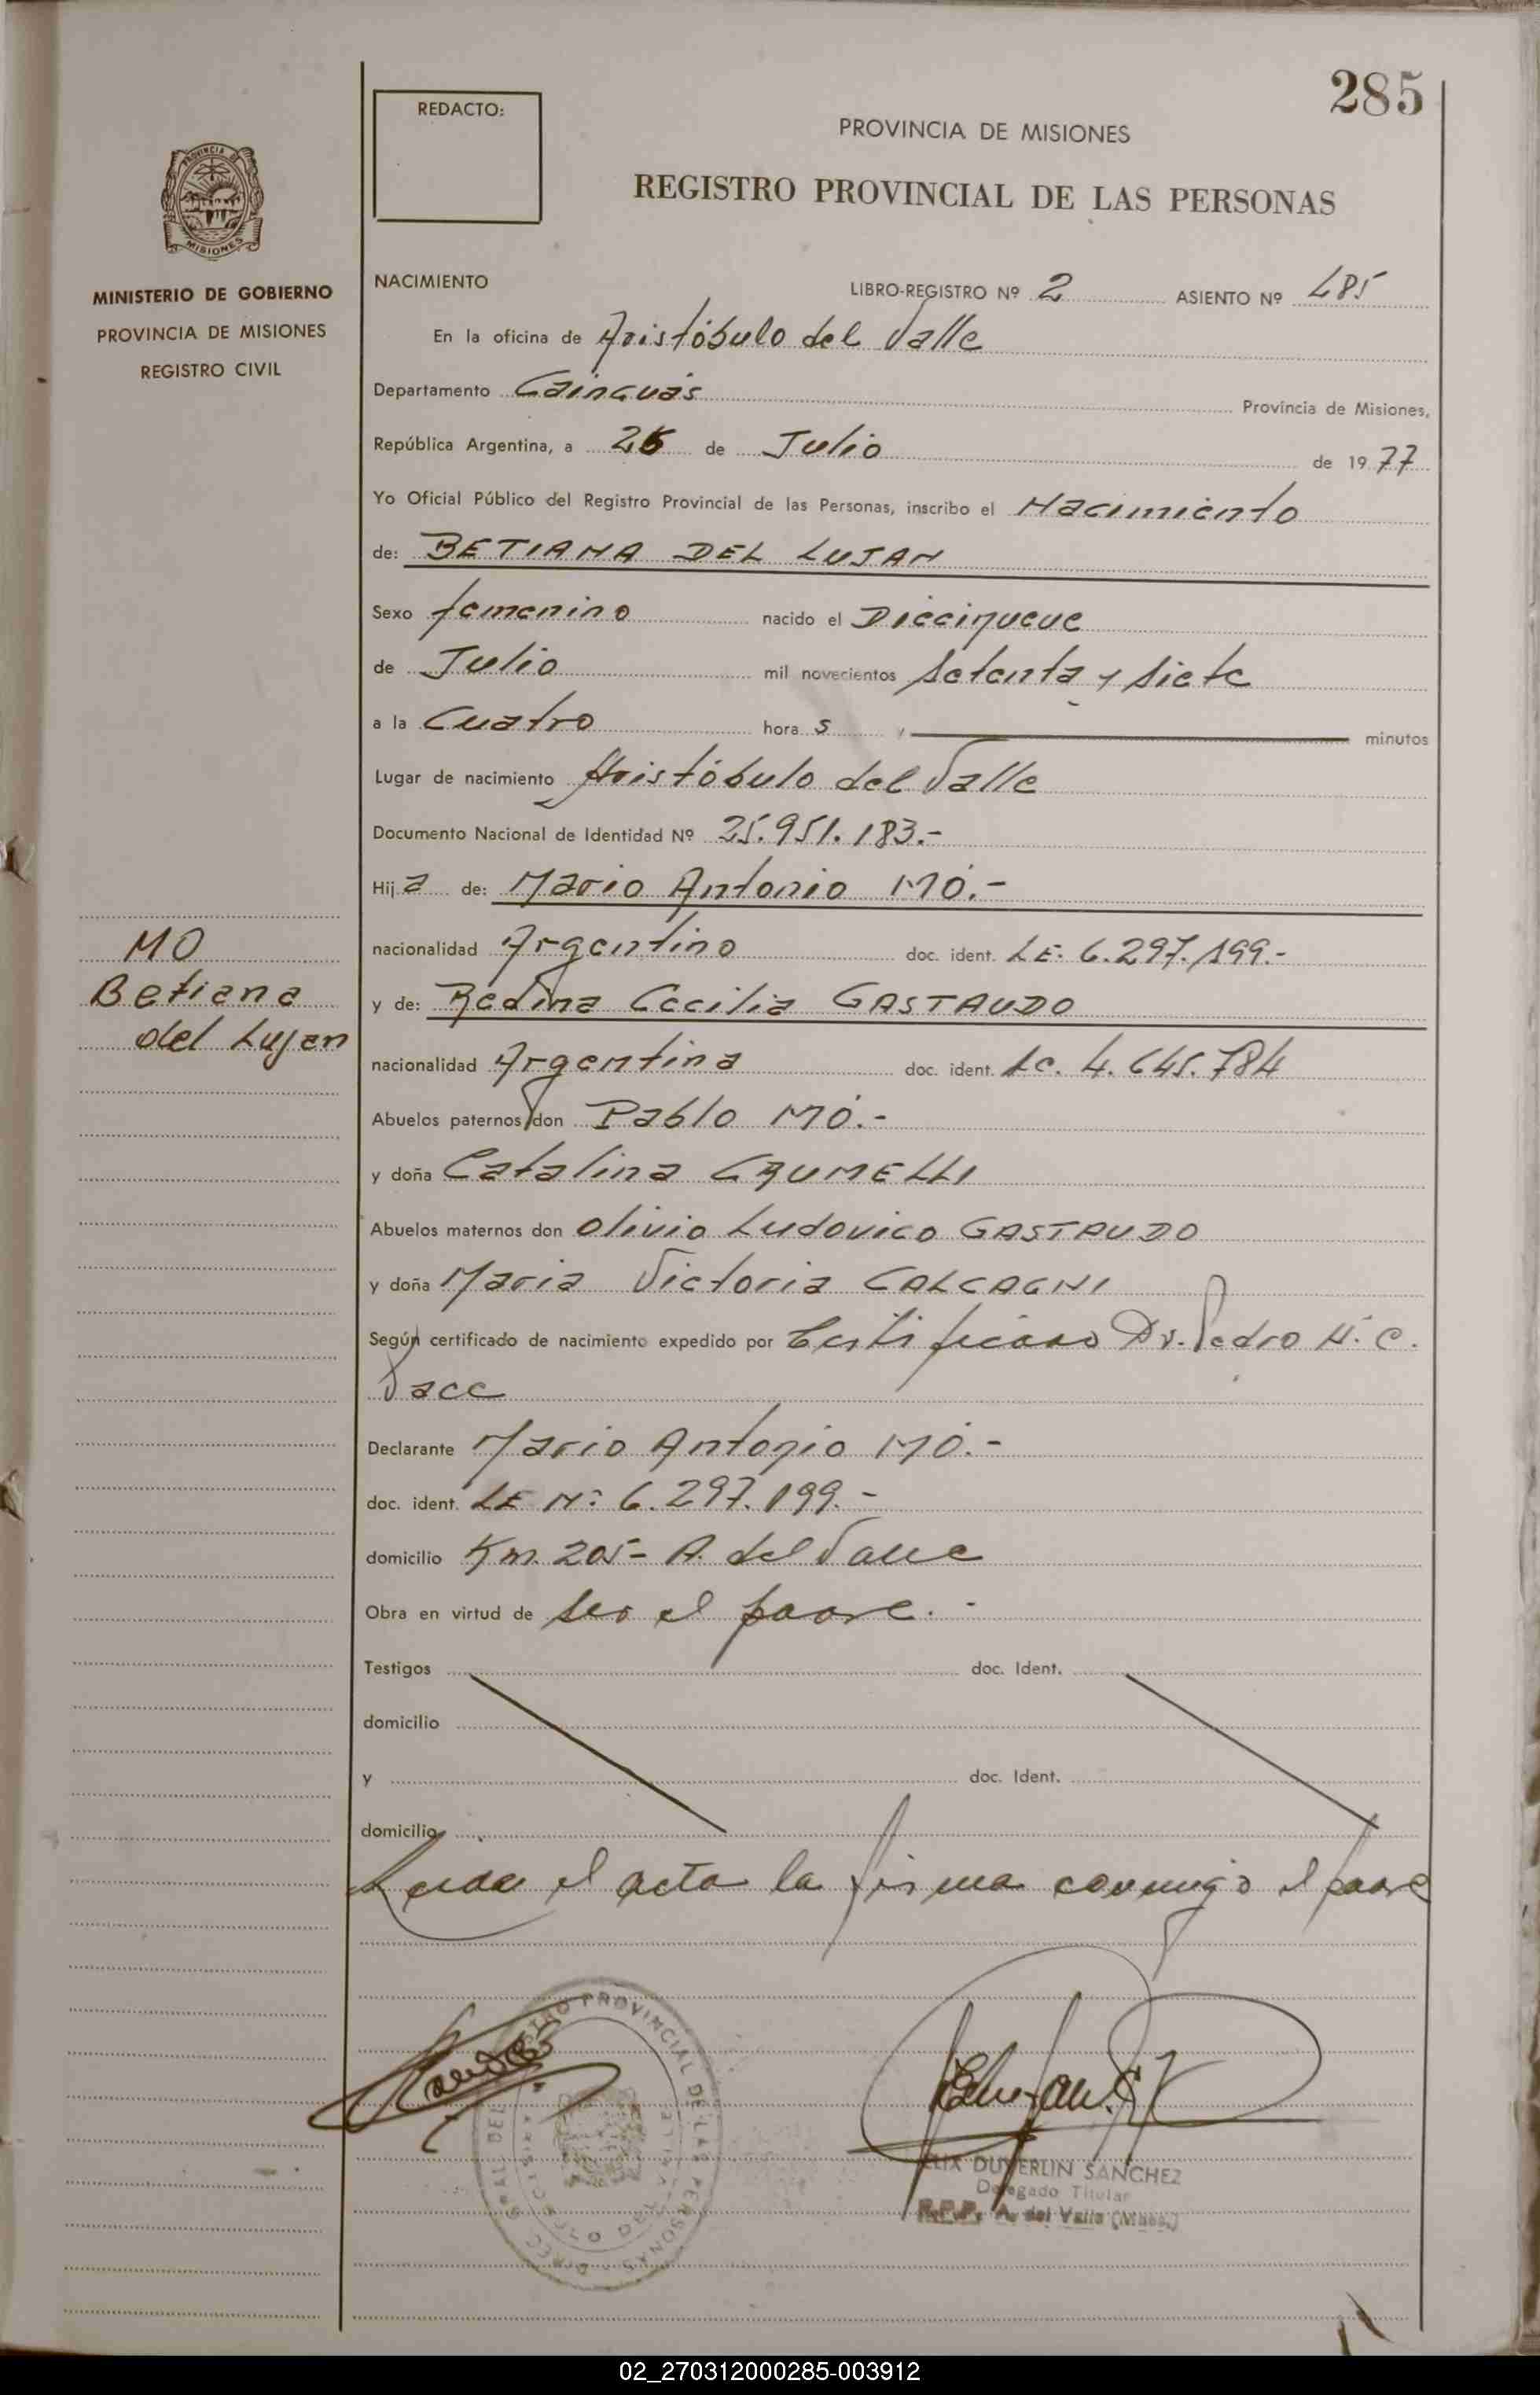 285
REDACTO:
PROVINCIA DE MISIONES
REGISTRO PROVINCIAL DE LAS PERSONAS
PROVINCIA DE
MISIONES
MINISTERIO DE GOBIERNO
PROVINCIA DE MISIONES
REGISTRO CIVIL
NACIMIENTO LIBRO-REGISTRO Nº 2 ASIENTO Nº 485
En la oficina de Aristóbulo del Valle
Departamento Cainguás Provincia de Misiones,
República Argentina, a de Julio de 1977
Yo Oficial Público del Registro Provincial de las Personas, inscribo el Nacimiento
de: BETIANA DEL LUJAN
Sexo femenino nacido el Diecinueve
de Julio mil novecientos setenta y siete
a la Cuatro hora s y minutos
Lugar de nacimiento Aristóbulo del Valle
Documento Nacional de Identidad Nº 25.951.183.-
Hij a de: Mario Antonio MÓ.-
nacionalidad Argentino doc. ident. LE. 6.297.199.-
y de: Cecilia GASTAUDO
nacionalidad Argentina doc. ident. LC. 4.645.784
Abuelos paternos don Pablo MÓ.-
y doña Catalina
Abuelos maternos don Olivio Ludovico GASTAUDO
y doña Maria Victoria CALCAGNI
Según certificado de nacimiento expedido por Dr. Pedro
Declarante Mario Antonio MÓ.-
doc. ident. LE Nº 6.297.199.-
domicilio Km. 205- A. del Valle
Obra en virtud de ser el padre.-
Testigos doc. Ident.
domicilio
y doc. Ident.
domicilio
Leida el acta la firma conmigo el padre
MO
Betiana
del Lujan
REGISTRO PROVINCIAL DE LAS PERSONAS
DUVERLIN SANCHEZ
Delegado Titular
R.P.P. A. del Valle (Mnes.)
02_270312000285-003912